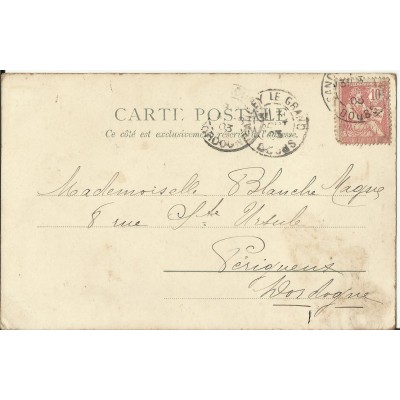 CARTE POSTALE
Ce côté est exclusivement réservé à l'adresse.
LE GRAND
03
10
03
DOUBS
Mademoiselle Blanche Magne
8 rue Ste Ursule
Périgueux
Dordogne
1